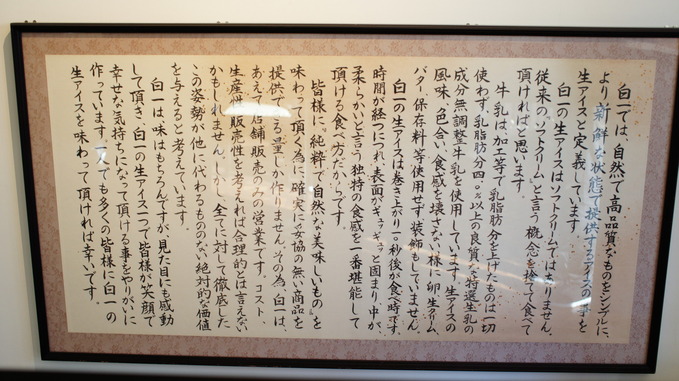 白一では、自然で高品質なものをシンプルに、
より新鮮な状態で提供するアイスの事を
生アイスと定義しています。
白一の生アイスはソフトクリームではありません。
従来の〝ソフトクリーム〟と言う概念を捨てて食べて
頂ければと思います。
牛乳は、加工等で乳脂肪分を上げたものは一切
使わず、乳脂肪分四.〇%以上の良質な特選生乳の
成分無調整牛乳を使用しています。生アイスの
風味、色合い、食感を壊さない様に卵、生クリーム、
バター、保存料、等使用せず、装飾もしていません。
白一の生アイスは巻き上がり一〇秒後が食べ時です。
時間が経つにつれ、表面がキュッギュッと固まり、中が、
柔らかいと言う独特の食感を一番堪能して
頂ける食べ方だからです。
皆様に〝純粋で自然な美味しいもの〟を
味わって頂く為に、確実に妥協の無い商品を
提供できる量しか作りません。その為、白一は、
あえて店舗販売のみの営業です。コスト、
生産性、販売性を考えれば合理的とは言えない
かもしれません。しかし、全てに対して徹底した
この姿勢が他に代わるもののない絶対的な価値
を与えると考えています。
白一は、味はもちろんですが、見た目にも感動
して頂き、白一の生アイス一つで皆様が笑顔で
幸せな気持ちになって頂ける事をやりがいに
作っています。一人でも多くの皆様に白一の
生アイスを味わって頂ければ幸いです。